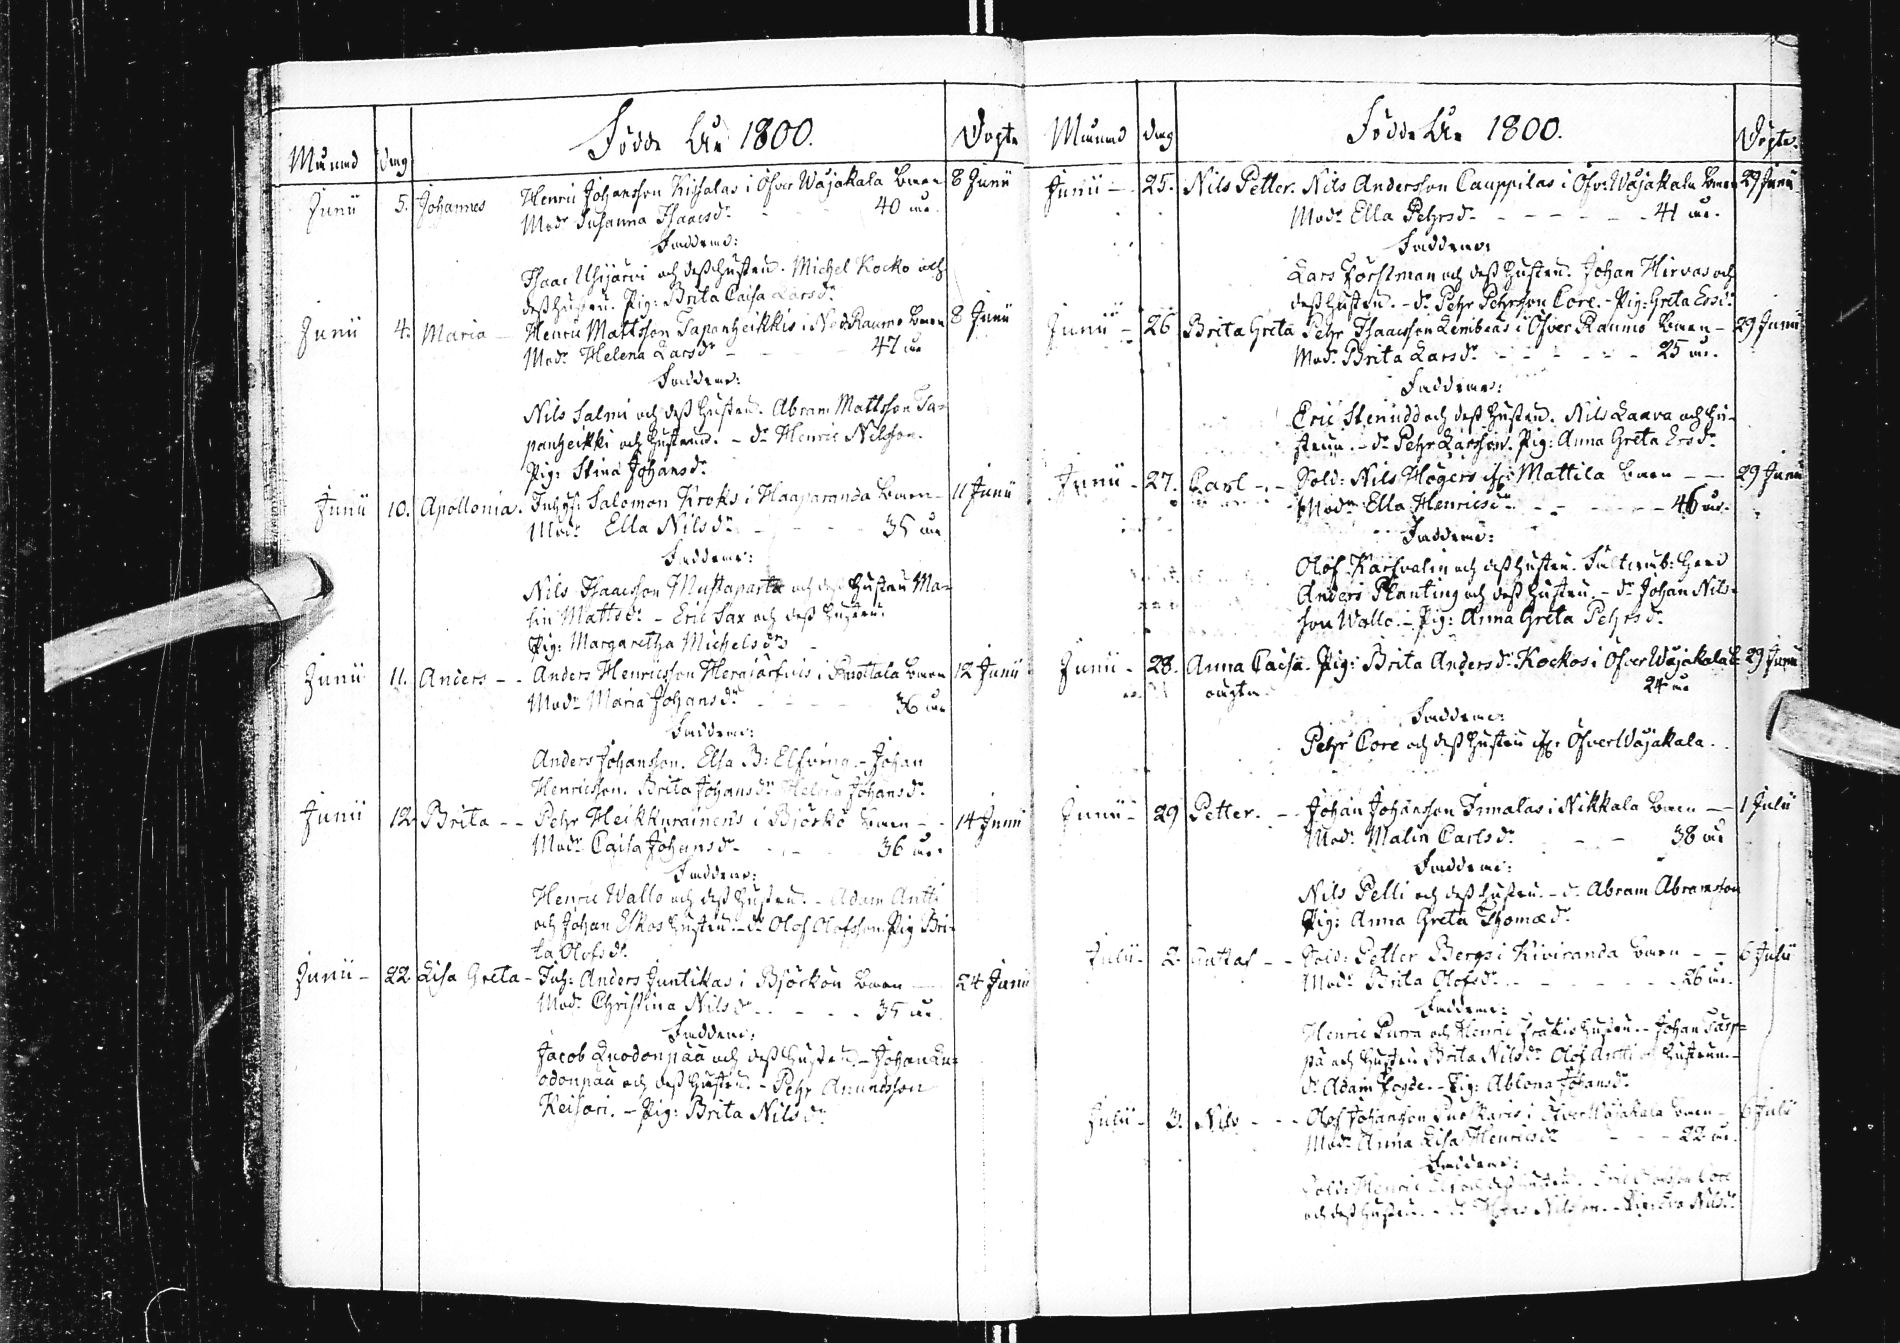 Månad dag Födde År 1800. Döpte
Junii 5. Johannes Henric Johansson Kissalas i Öfver Wojakala Barn 8 Junii
Mod: Susanna Isaacsdr - - 40 år.
Faddrar:
Isaac Uhijärvi och dess hustru. Michel Kocko och
dess hustru. Pig: Brita Caisa Larsdr
Junii 4. Maria - Henric Mattsson Tapanheikkis i Ned. Raumo Barn 8 Junii
Mod: Helena Larsdr - - - 47 år
Faddrar:
Nils Salmi och dess hustru. Abram Mattsson Ta-
panheikki och hustrun. - dr Henric Nilsson.
Pig: Stina Johansdr
Junii 10. Apollonia. Inhys: Salomon Kroks i Haaparanda Barn - 11 Junii
Mod: Ella Nilsdr - - - 35 år
Faddrar:
Nils Isaacsson Mustaparta och dess hustru Ma-
lin Mattsdr - Eric Sax och dess hustru.
Pig: Margaretha Michelsdr
Junii 11. Anders - - Anders Henricsson i Barn 12 Junii
Mod: Maria Johansdr - - - 36 år
Faddrar:
Anders Johansson. Elsa B: Elfving. - Johan
Henricsson. Brita Johansdr Helena Johansdr
Junii 12. Brita - - Pehr Heikkurainens i Björkö Barn - - 14 Junii
Mod: Caisa Johansdr - - - 36 år.
Faddrar:
Henric Wallo och dess hustru. - Adam Antti
och Johan Eskos hustru. - dr Olof Olofsson. Pig Bri-
ta Olofsdr
Junii - 22 Lisa Greta - Inh: Anders Juntikas i Björkön Barn - 24 Junii
Mod: Christina Nilsdr - - - 35 år.
Faddrar:
Jacob Kuodonpää och dess hustru. - Johan Ku-
odonpää och dess hustru. - Pehr Amundsson
Keisari. - Pig: Brita Nilsdr
Månad dag Födde År 1800. Döpte.
Junii - 25. Nils Petter. Nils Andersson Cauppilas i Öfv: Wojakala Barn 29 Junii
Mod: Ella Pehrsdr - - - - 41 år.
Faddrar:
Lars Forsman och dess hustru. Johan Hirvas och
dess hustru. - dr Pehr Pehrsson Core. - Pig: Greta Ersdr
Junii - 26 Brita Greta Pehr Isaacsson Lembeas i Öfver Raumo Barn - 29 Junii
Mod: Brita Larsdr - - - - 25 år.
Faddrar:
Eric Stenudd och dess hustru. Nils Laara och hu-
strun. - dr Pehr Larsson. Pig: Anna Greta Ersdr
Junii - 27. Carl - - Sold: Nils Högers Mattila Barn - - 29 Junii
Mod: Ella Henricsdr - - - 46 år.
Faddrar:
Olof Karsvalin och dess hustru. herr
Anders Planting och dess hustru. - dr Johan Nils-
son Wallo. - Pig: Anna Greta Pehrsdr
Junii - 28. Anna Caisa. Pig: Brita Andersdr Kockos i Öfver Wojakala B. 29 Junii
oägta 24 år
Faddrar:
Pehr Core och dess hustru Öfver Wojakala.
Junii - 29 Petter. - Johan Johansson i Nikkala Barn - 1 Julii
Mod: Malin Carlsdr - - 38 år
Faddrar:
Nils Pelli och dess hustru. - dr Abram Abramsson
Pig: Anna Greta Thomædr
Julii - 2. Gustaf - - Sold: Petter Bergs i Kiviranda Barn - - 6 Julii
Mod: Brita Olofsdr - - - - 26 år.
Faddrar:
Henric Purra och Henric hustru. - Johan
på och hustru Brita Nilsdr Olof Antti och hustrun. -
dr Adam Fogde. - Pig: Ablona Johansdr
Julii - 3. Nils - - - Olof Johansson i Öfver Wojakala Barn - 6 Julii
Mod: Anna Lisa Henricsdr - - - 22 år.
Faddrar:
Sold: Henric och dess hustru. Eric Core
och dess hustru. - dr Nilsson. - Pig: Eva Nilsdr